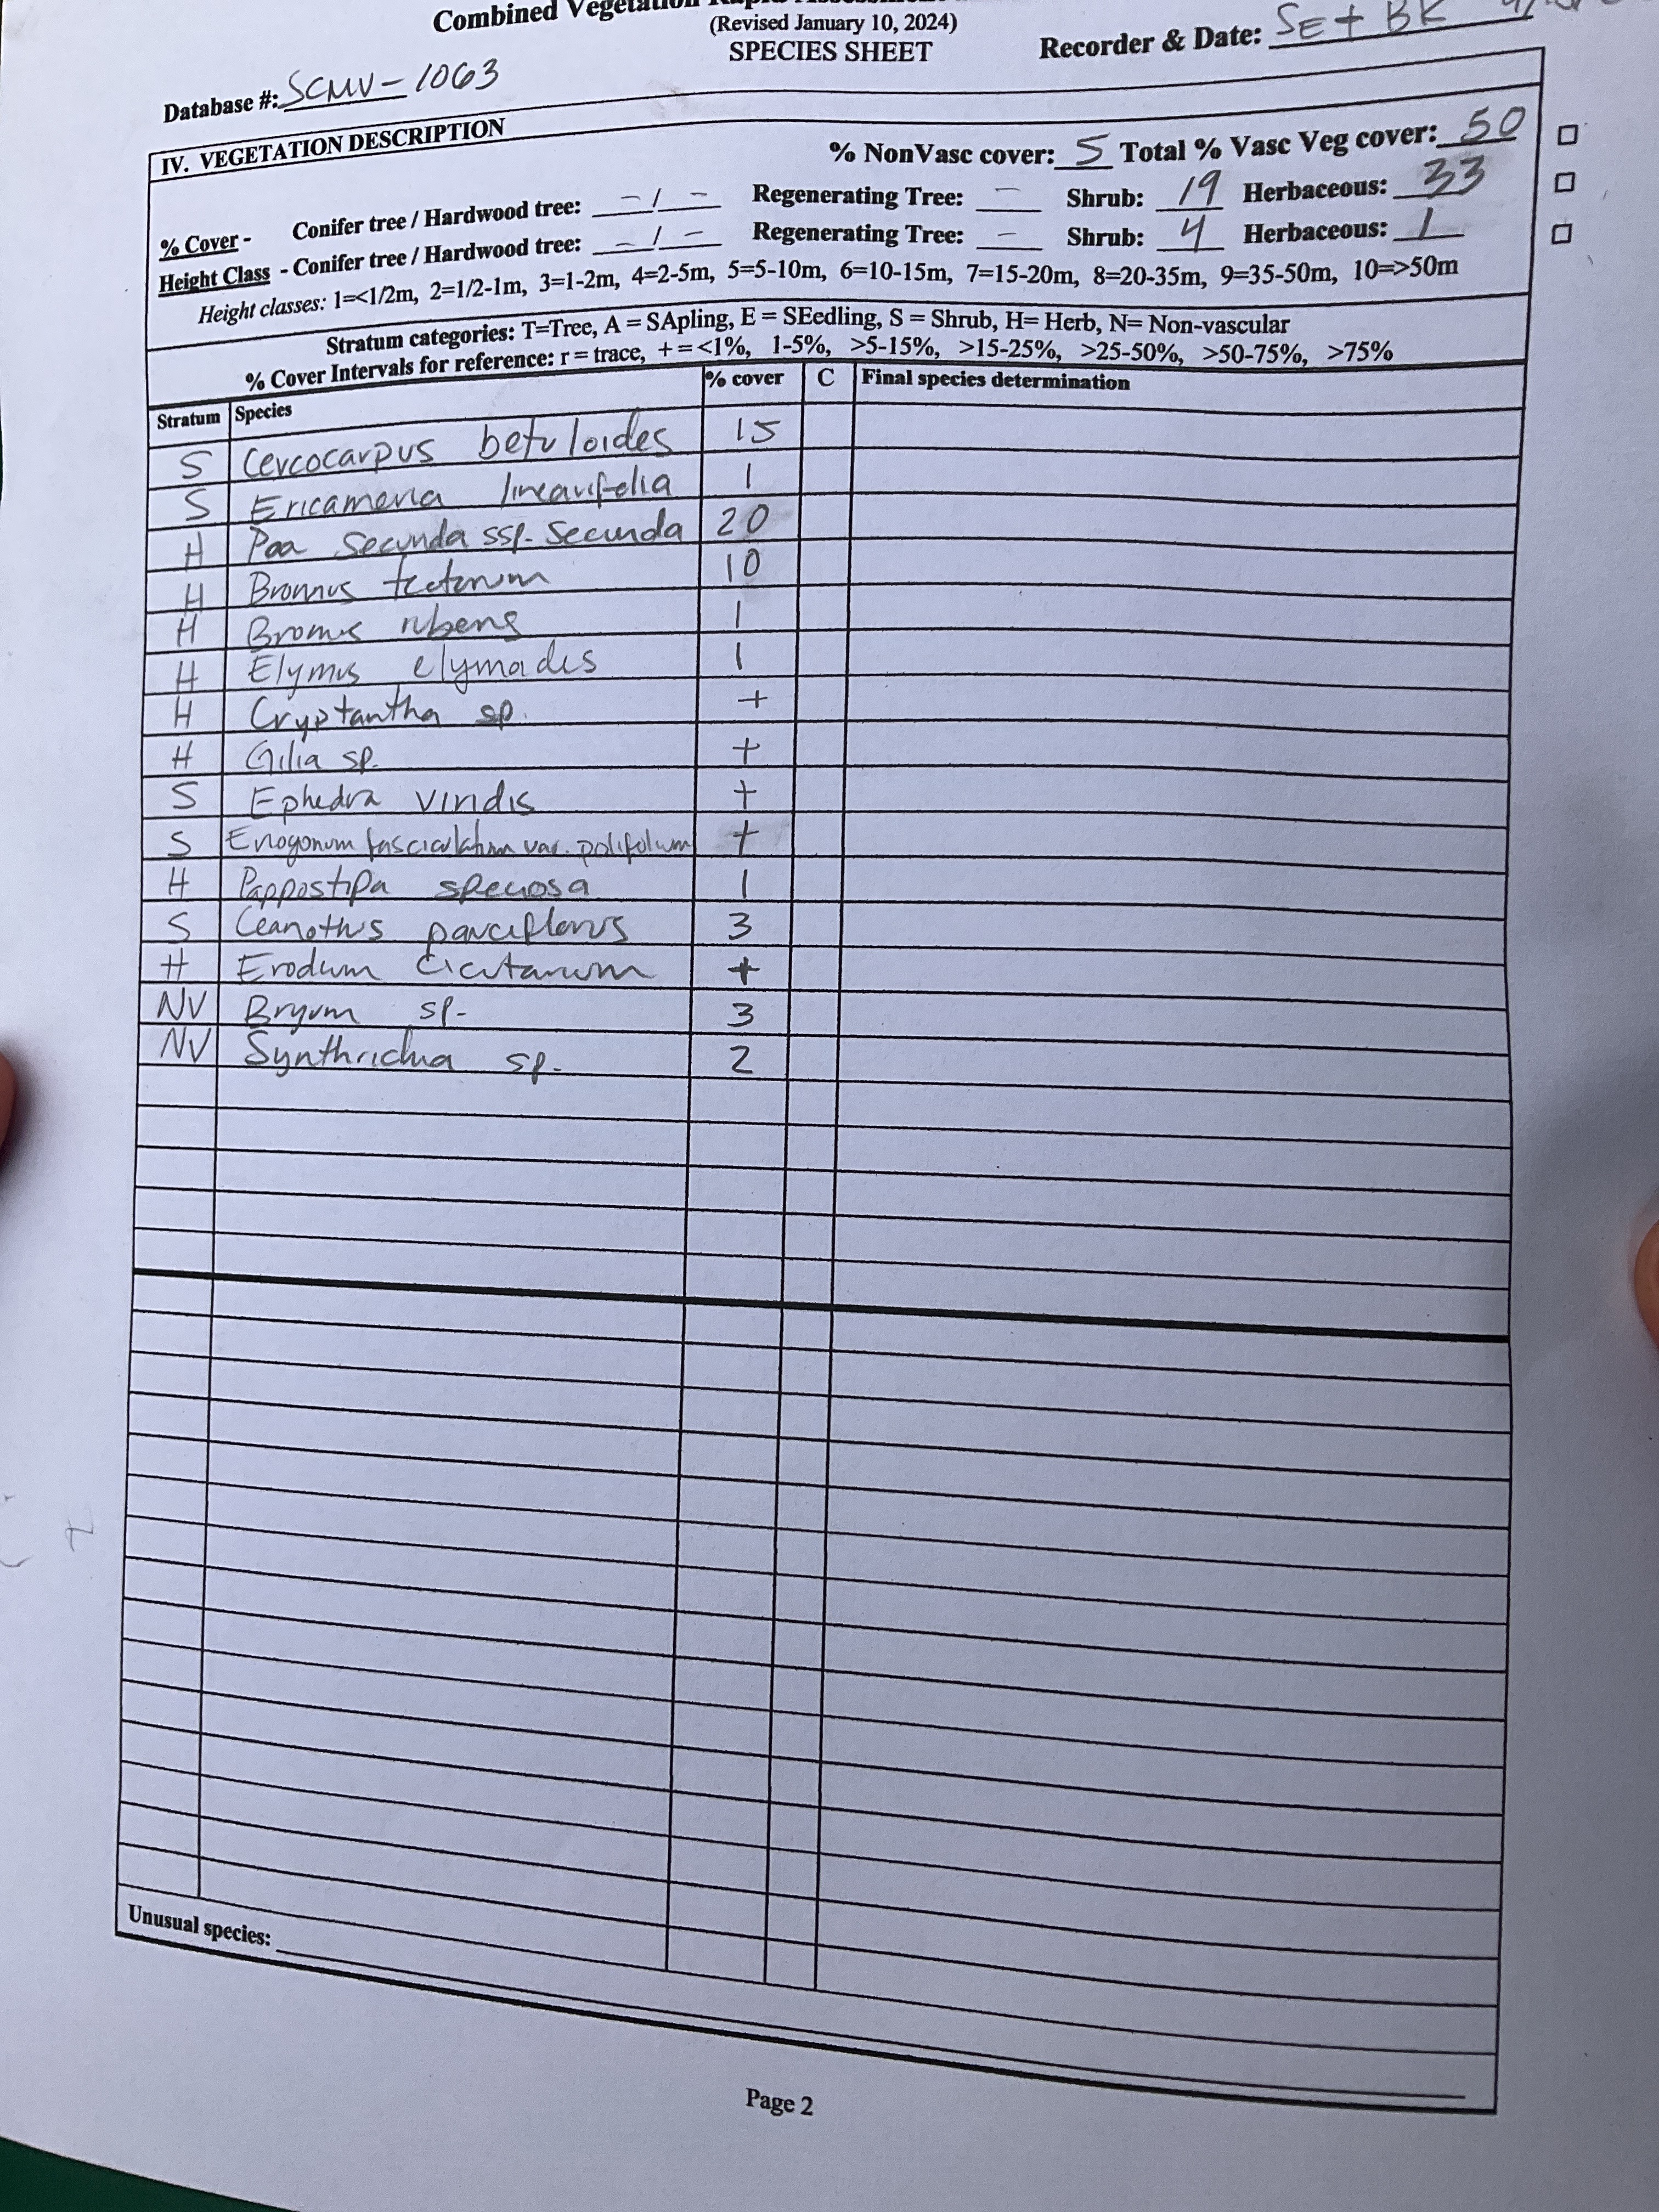 Combined Vegetation Rapid Assessment
(Revised January 10, 2024)
SPECIES SHEET
Recorder & Date: SE + BK
Database #: SCMV-1063
IV. VEGETATION DESCRIPTION
% NonVasc cover: 5 Total % Vasc Veg cover: 50
% Cover - Conifer tree / Hardwood tree: - / - Regenerating Tree: - Shrub: 19 Herbaceous: 33
Height Class - Conifer tree / Hardwood tree: - / - Regenerating Tree: - Shrub: 4 Herbaceous: 1
Height classes: 1=<1/2m, 2=1/2-1m, 3=1-2m, 4=2-5m, 5=5-10m, 6=10-15m, 7=15-20m, 8=20-35m, 9=35-50m, 10=>50m
Stratum categories: T=Tree, A = SApling, E = SEedling, S = Shrub, H= Herb, N= Non-vascular
% Cover Intervals for reference: r = trace, + = <1%, 1-5%, >5-15%, >15-25%, >25-50%, >50-75%, >75%
Stratum Species % cover C Final species determination
S Cercocarpus betuloides 15
S Ericameria linearifolia 1
H Poa secunda ssp. secunda 20
H Bromus tectorum 10
H Bromus rubens 1
H Elymus elymoides 1
H Cryptantha sp. +
H Gilia sp. +
S Ephedra viridis +
S Eriogonum fasciculatum var. polifolium +
H Pappostipa speciosa 1
S Ceanothus pauciflorus 3
H Erodium cicutarium +
NV Bryum sp. 3
NV Synthrichia sp. 2
Unusual species:
Page 2